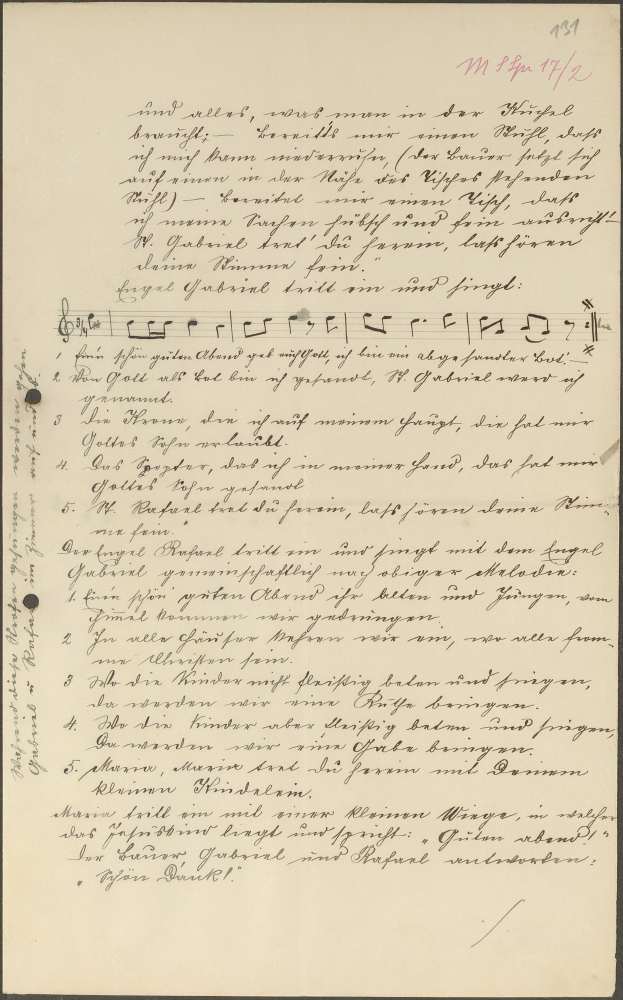 131
M I Spr 17/2
und alles, was man in der Kuchel
braucht; — Bereit's mir einen Stuhl, dass
ich mich kann niederruhn, (der Bauer setzt sich
auf einen in der Nähe des Tisches stehenden
Stuhl) — Bereitet mir einen Tisch, dass
ich meine Sachen hübsch und fein ausricht! —
St. Gabriel tret' du herein, lass hören
deine Stimme fein."
Engel Gabriel tritt ein und singt:
3/4
1 Ein schön guten Abend geb euch Gott, ich bin ein abgesandter Bot'. —
2 Von Gott als Bot bin ich gesandt, St. Gabriel werd ich
genannt.
3 Die Krone, die ich auf meinem Haupt, die hat mir
Gottes Sohn erlaubt.
4. Das Szepter, das ich in meiner Hand, das hat mir
Gottes Sohn gesandt
5. St. Rafael tret du herein, lass hören deine Stim-
me fein."
Der Engel Rafael tritt ein und singt mit dem Engel
Gabriel gemeinschaftlich nach obiger Melodie:
1. Ein schön guten Abend ihr Alten und Jungen, vom
Himmel kommen wir gedrungen.
2 In alle Häuser kehren wir ein, wo alle from-
me Christen sein.
3 Wo die Kinder nicht fleißig beten und singen,
da werden wir eine Ruthe bringen.
4. Wo die Kinder aber fleißig beten und singen,
Da werden wir eine Gabe bringen.
5. Maria, Maria tret du herein mit Deinem
kleinen Kindelein.
Maria tritt ein mit einer kleinen Wiege, in welcher
das Jesuskind liegt und spricht: „Guten Abend!"
Der Bauer, Gabriel und Rafael antworten:
„Schön Dank!"
Während diese Strofen gesungen werden gehen
Gabriel u Rafael im Zimmer auf und ab.